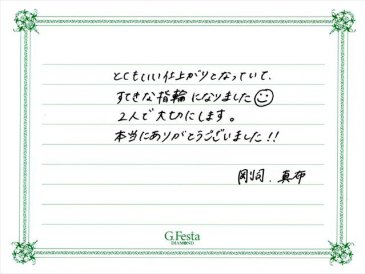 とてもいい仕上がりとなっていて、
すてきな指輪になりました☺
2人で大切にします。
本当にありがとうございました!!
真布
G.Festa
DIAMOND